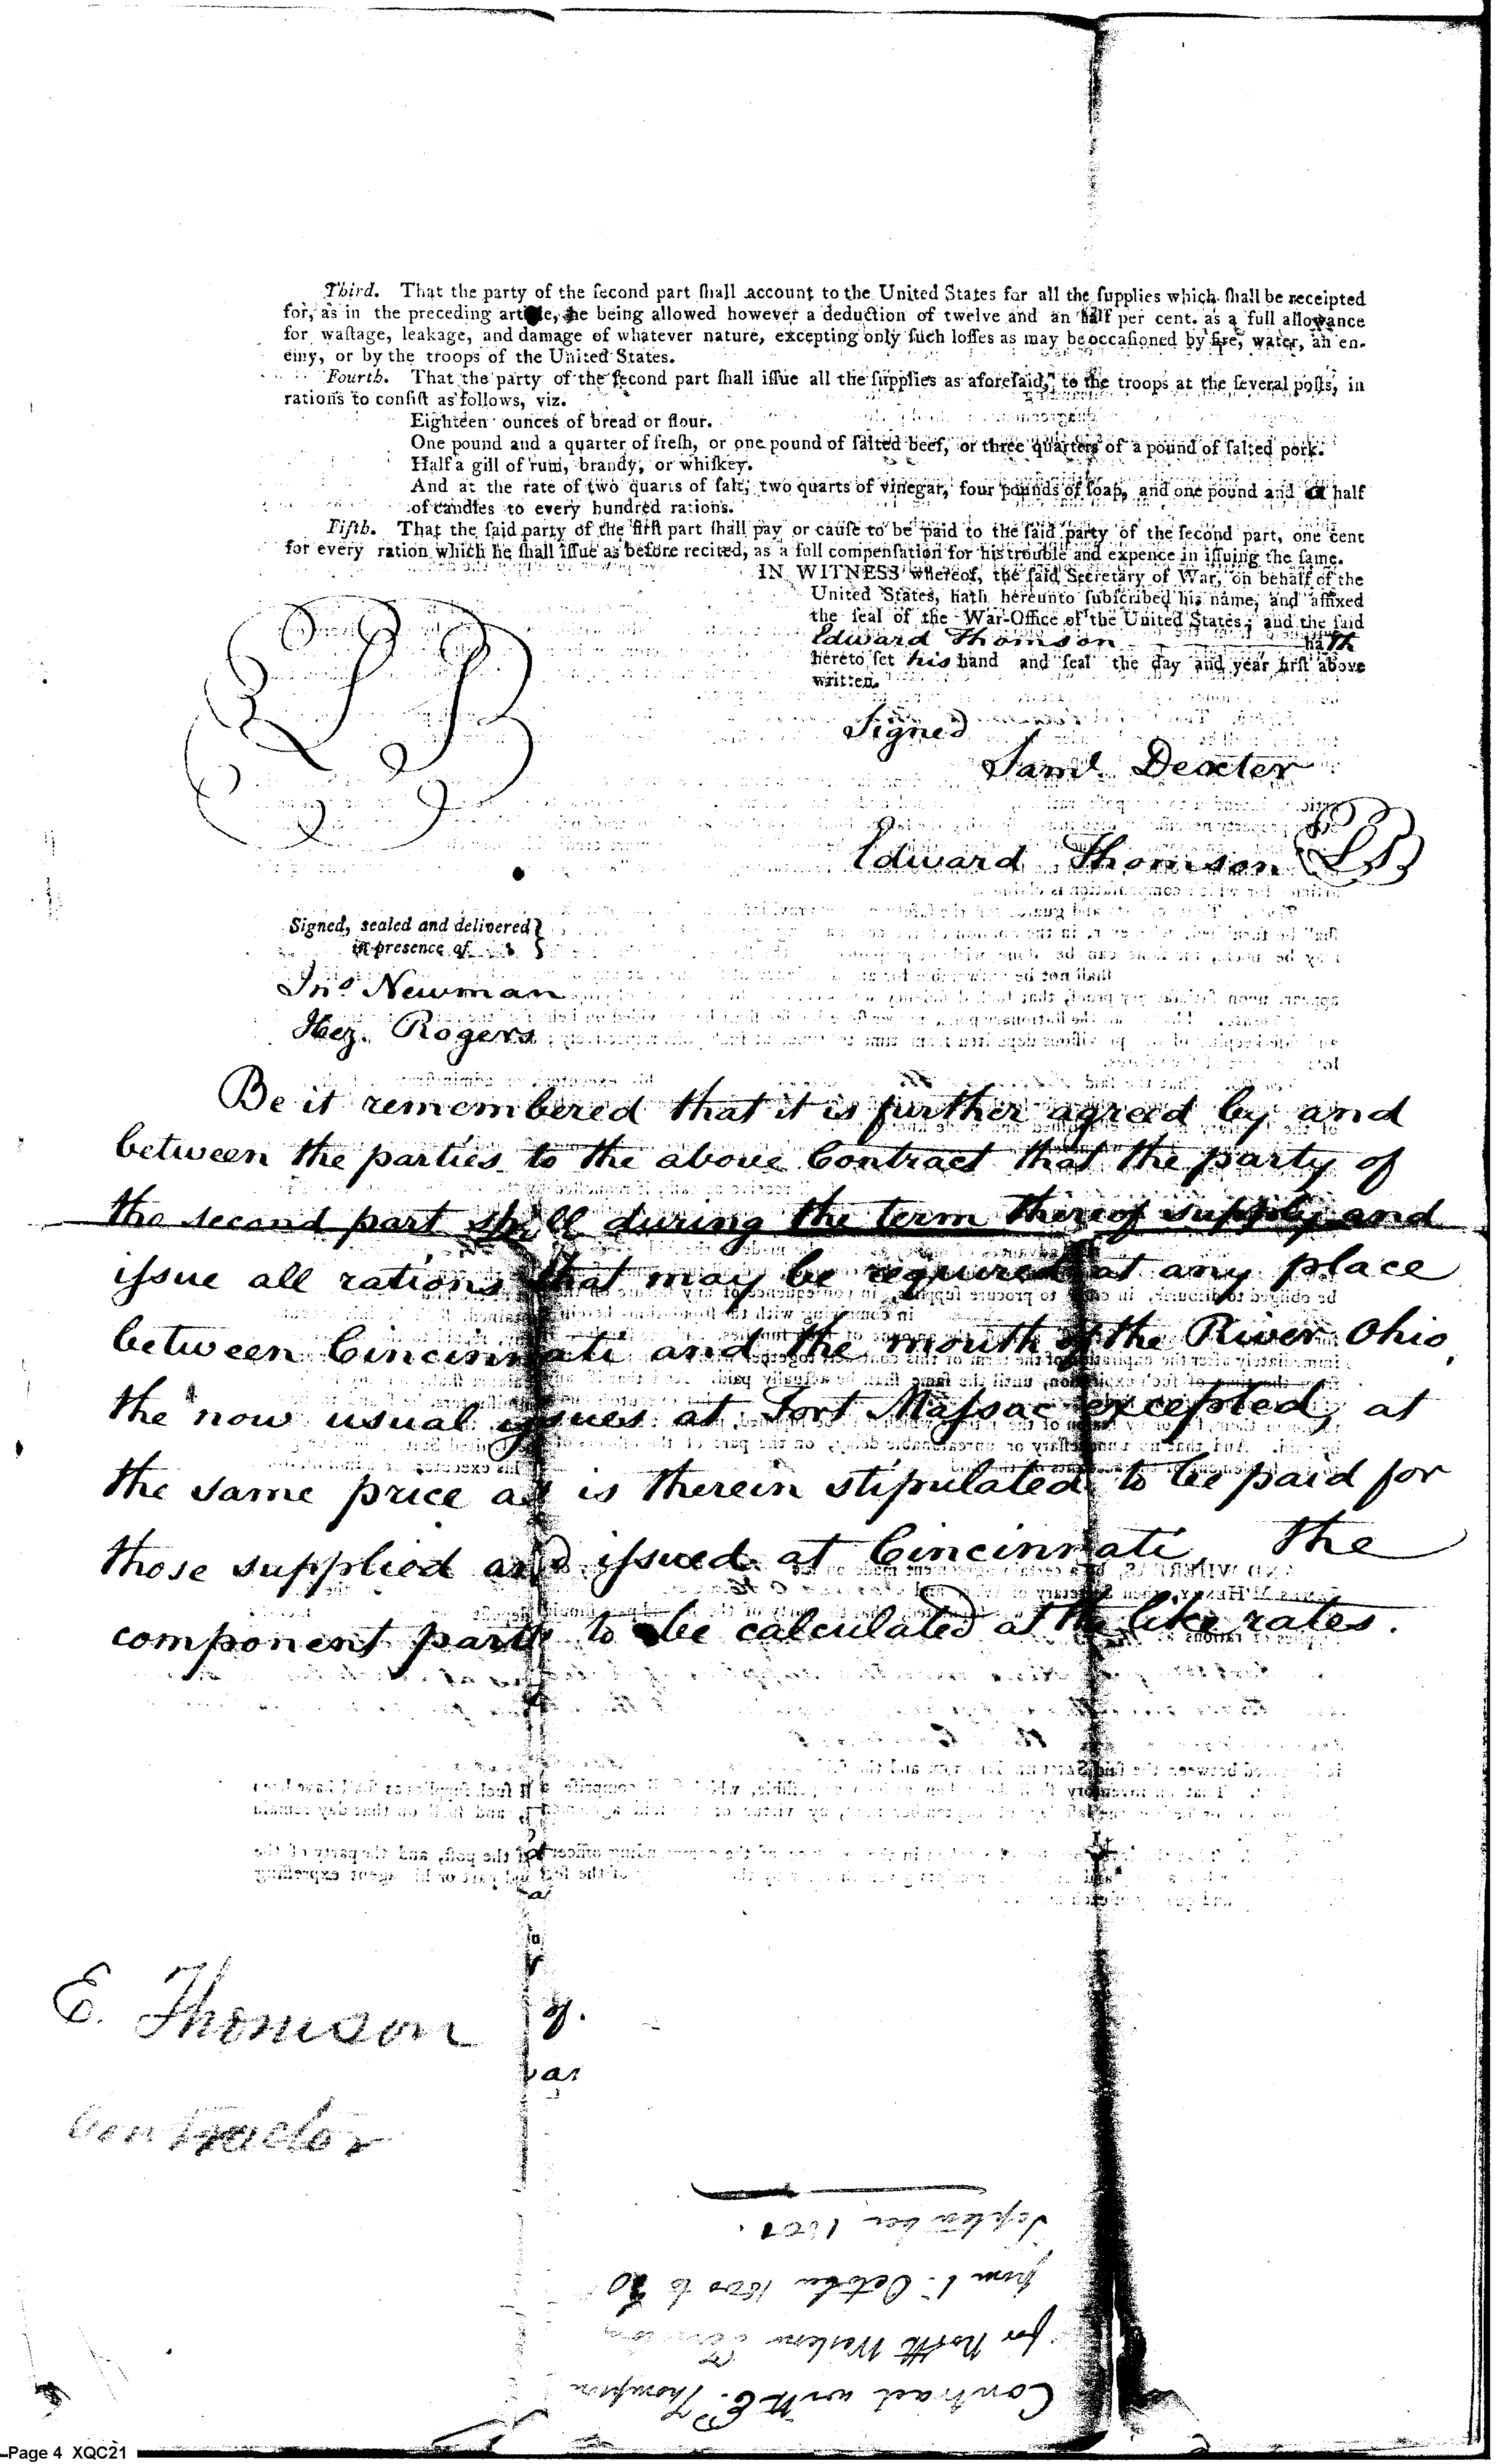 Third. That the party of the ſecond part ſhall account to the United States for all the ſupplies which ſhall be receipted
for, as in the preceding article, he being allowed however a deduction of twelve and an half per cent. as a full allowance
for waſtage, leakage, and damage of whatever nature, excepting only ſuch loſſes as may be occaſioned by fire, water, an en-
emy, or by the troops of the United States.
Fourth. That the party of the ſecond part ſhall iſſue all the ſupplies as aforeſaid, to the troops at the ſeveral poſts, in
rations to conſiſt as follows, viz.
Eighteen ounces of bread or flour.
One pound and a quarter of freſh, or one pound of ſalted beef, or three quarters of a pound of ſalted pork.
Half a gill of rum, brandy, or whiſkey.
And at the rate of two quarts of ſalt, two quarts of vinegar, four pounds of ſoap, and one pound and a half
of candles to every hundred rations.
Fifth. That the ſaid party of the firſt part ſhall pay or cauſe to be paid to the ſaid party of the ſecond part, one cent
for every ration which he ſhall iſſue as before recited, as a full compenſation for his trouble and expence in iſſuing the ſame.
IN WITNESS whereof, the ſaid Secretary of War, on behalf of the
United States, hath hereunto ſubſcribed his name, and affixed
the ſeal of the War-Office of the United States; and the ſaid
Edward Thomson hath
hereto ſet his hand and ſeal the day and year firſt above
written.
Signed
Saml. Dexter
Edward Thomson LS
LS
Signed, sealed and delivered }
in presence of
Jno Newman
Hez. Rogers
Be it remembered that it is further agreed by and
between the parties to the above Contract that the party of
the second part shall during the term thereof supply and
iſsue all rations that may be required at any place
between Cincinnati and the mouth of the River Ohio,
the now usual iſsues at Fort Maſsac excepted, at
the same price as is therein stipulated to be paid for
those supplied and iſsued at Cincinnati the
component parts to be calculated at the like rates.
E. Thomson
Contractor
Contract with E. Thompson
for North Western Territory
from 1t. October 1800 to 30
September 1801.
Page 4 XQC21